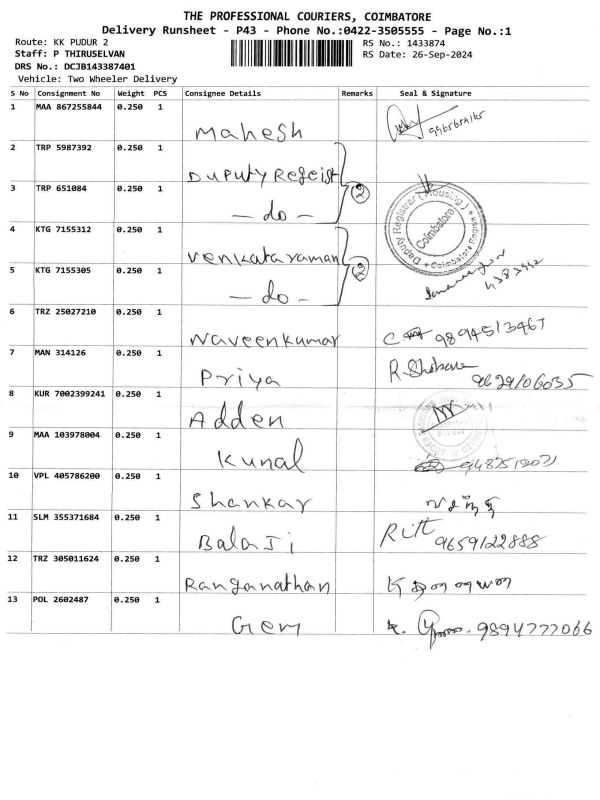 THE PROFESSIONAL COURIERS, COIMBATORE
Delivery Runsheet - P43 - Phone No.:0422-3505555 - Page No.:1
Route: KK PUDUR 2
Staff: P THIRUSELVAN
DRS No.: DCJB143387401
Vehicle: Two Wheeler Delivery
RS No.: 1433874
RS Date: 26-Sep-2024
S No Consignment No Weight PCS Consignee Details Remarks Seal & Signature
1 MAA 867255844 0.250 1
Mahesh
2 TRP 5987392 0.250 1
Duputy Regeist
3 TRP 651084 0.250 1
- do - 2
Deputy Registrar (Housing) Coimbatore
4 KTG 7155312 0.250 1
Venkataraman
5 KTG 7155305 0.250 1
- do - 2
6 TRZ 25027210 0.250 1
Naveenkumar 9894513467
7 MAN 314126 0.250 1
Priya R. Shobana 9629106035
8 KUR 7002399241 0.250 1
Adden
9 MAA 103978004 0.250 1
Kunal
10 VPL 405786200 0.250 1
Shankar
11 SLM 355371684 0.250 1
Balaji 9659122888
12 TRZ 305011624 0.250 1
Ranganathan
13 POL 2602487 0.250 1
Gem 9894777066